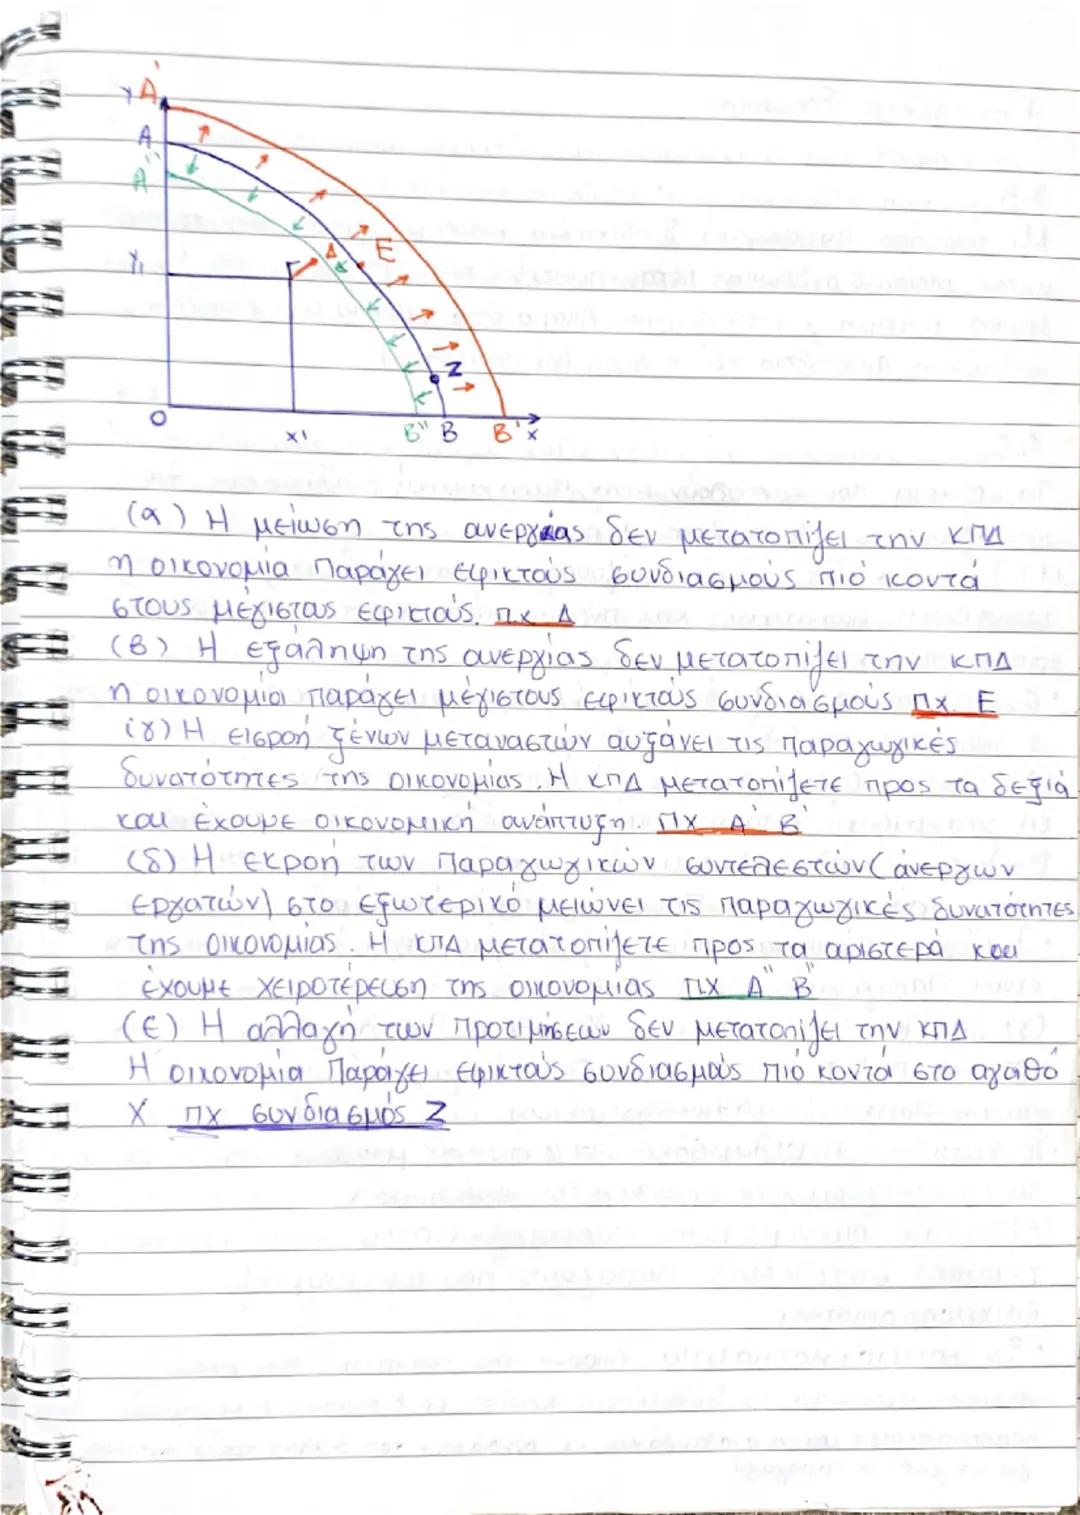 Υ Α'
Α
Α''
Υ1
Γ
Δ
Ε
Ζ
Ο
Χ1
Β'' Β Β' Χ
(α) Η μείωση της ανεργίας δεν μετατοπίζει την ΚΠΔ
η οικονομία Παράγει εφικτούς συνδιασμούς πιό κοντά
στους μέγιστους εφικτούς. πχ Δ
(β) Η εξάληψη της ανεργίας δεν μετατοπίζει την ΚΠΔ
η οικονομία παράγει μέγιστους εφικτούς συνδιασμούς πχ. Ε
(γ) Η εισροή ξένων μεταναστών αυξάνει τις παραγωγικές
δυνατότητες της οικονομίας. Η ΚΠΔ μετατοπίζετε προς τα δεξιά
και έχουμε οικονομική ανάπτυξη. πχ Α' Β'
(δ) Η εκροή των παραγωγικών συντελεστών (άνεργων
εργατών) στο εξωτερικό μειώνει τις παραγωγικές δυνατότητες
της οικονομίας. Η ΚΠΔ μετατοπίζετε προς τα αριστερά και
έχουμε χειροτέρευση της οικονομίας πχ Α'' Β''
(ε) Η αλλαγή των προτιμήσεων δεν μετατοπίζει την ΚΠΔ
Η οικονομία Παράγει εφικτούς συνδιασμούς πιό κοντά στο αγαθό
Χ πχ συνδιασμός Ζ